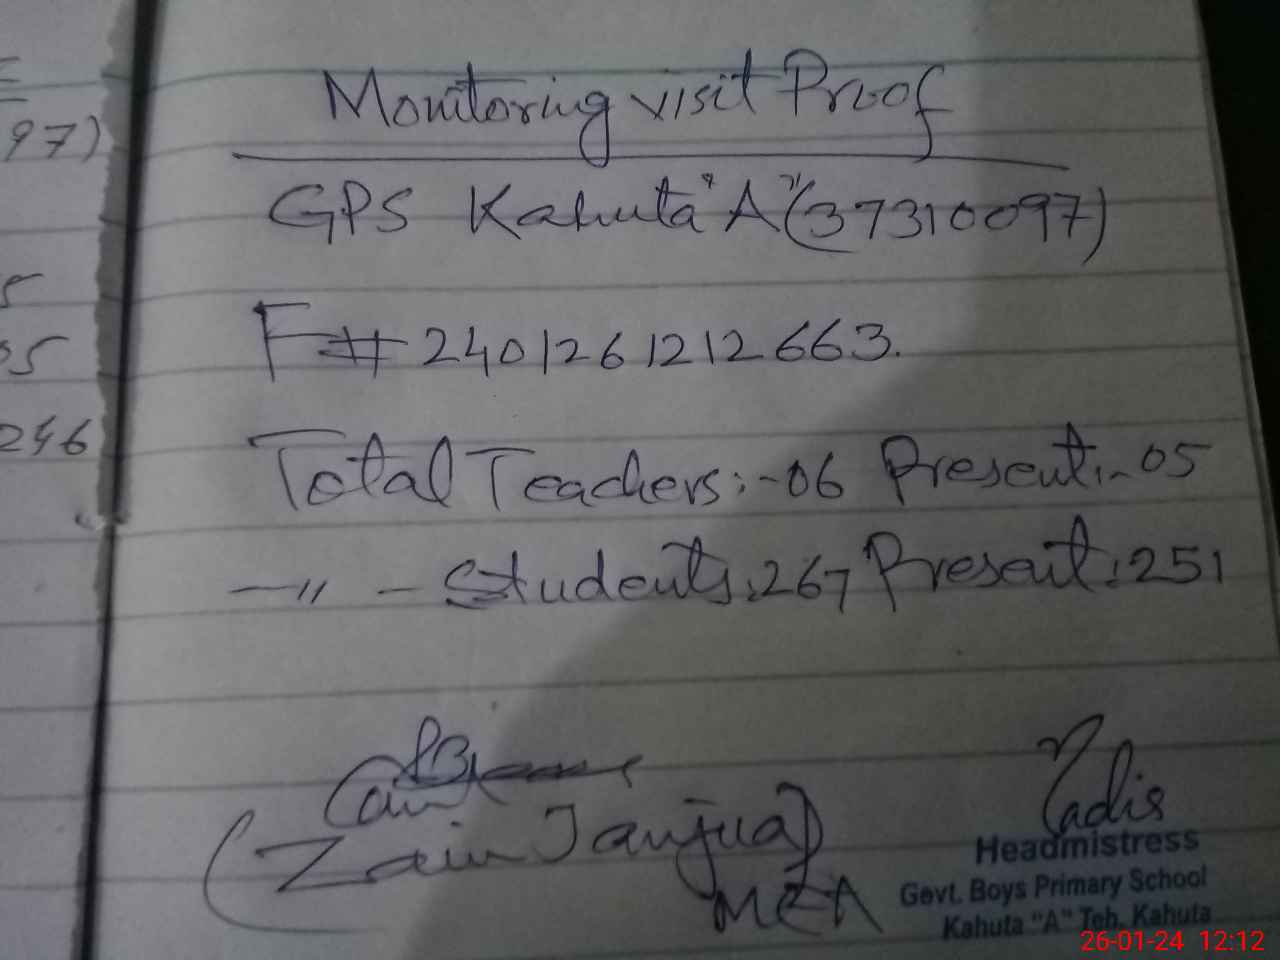 97)
5
05
246
Monitoring visit Proof
GPS Kahuta "A" (37310097)
F# 2401261212663.
Total Teachers:-06 Present:-05
—〃 - Students:267 Present:251
(Zain Janjua)
MEA
Headmistress
Govt. Boys Primary School
Kahuta "A" Teh. Kahuta
26-01-24 12:12